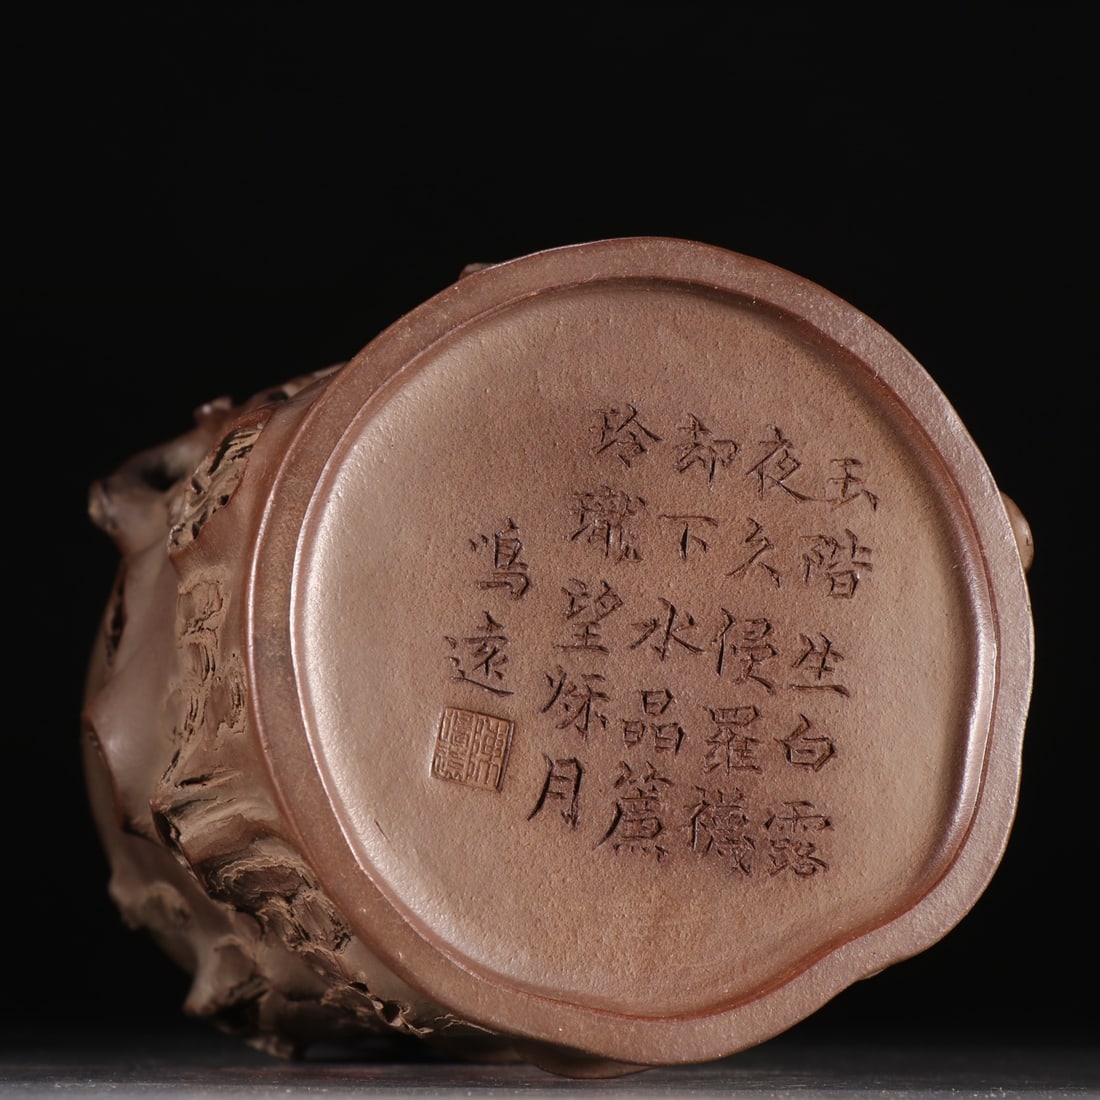 玉階生白露
夜久侵羅襪
却下水晶簾
玲瓏望秌月
鳴遠
陳鳴遠